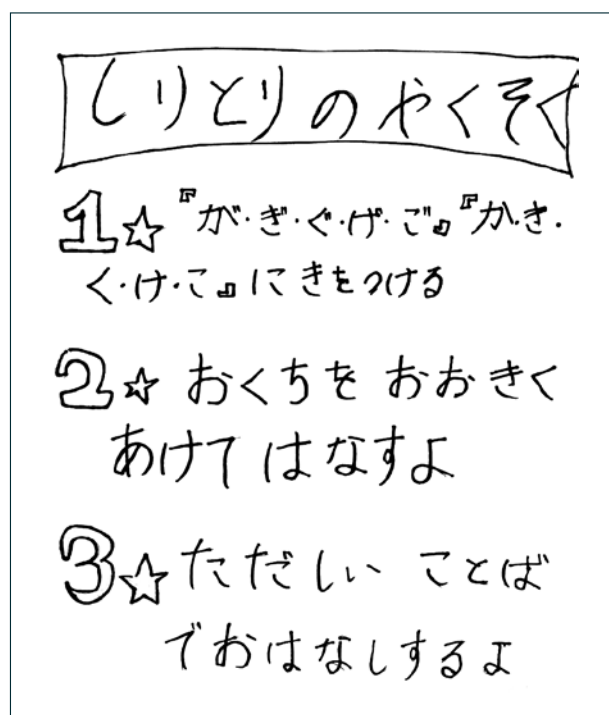 しりとりのやくそく
1☆『が・ぎ・ぐ・げ・ご』『か・き・
く・け・こ』にきをつける
2☆ おくちを おおきく
あけて はなすよ
3☆ただしい ことば
でおはなしするよ